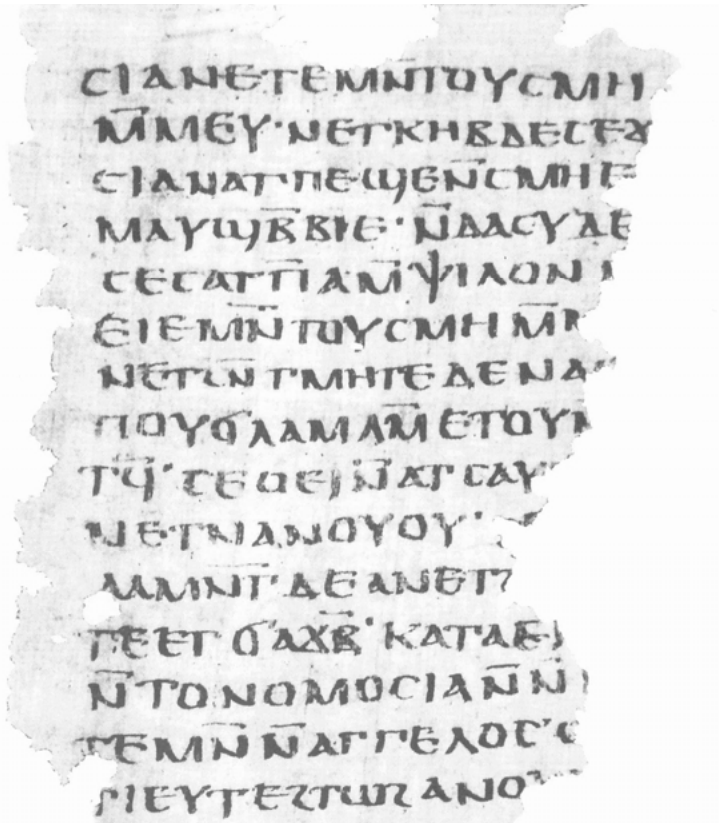 ⲥⲓⲁⲛⲉⲧⲉⲙⲛ̅ⲧⲟⲩⲥⲙⲏ
ⲙ̅ⲙⲉⲩ·ⲛⲉⲧⲕⲏⲃⲇⲉⲥⲉϫ
ⲥⲓⲁⲛⲁⲧ·ⲡⲉϣⲉⲛ̅ⲥⲙⲏⲉ
ⲙⲁⲩϣⲃ̅ⲃⲓⲉ·ⲛ̅ⲇⲁⲥⲩⲇⲉ
ⲥⲉⲥⲁⲧⲡ̅ⲁⲙ̅ⲯⲓⲗⲟⲛ
ⲉⲓⲉⲙⲛ̅ⲧⲟⲩⲥⲙⲏⲙ̅ⲙ
ⲛⲉⲧϩⲛ̅ⲧⲙⲏⲧⲉⲇⲉⲛⲁ
ⲡⲟⲩϭⲗⲁⲙⲗⲙ̅ⲉⲧⲟⲩⲛ
ⲧϥ̅·ⲥⲉⲟⲉⲓⲛ̅ⲁⲧⲥⲁⲩ
ⲛⲉⲧⲛⲁⲛⲟⲩⲟⲩ·
ⲁⲙⲙⲛ̅ⲧ'ⲇⲉⲁⲛⲉⲧ
ⲧⲉⲉⲧ'ϭⲁϫⲃ̅·ⲕⲁⲧⲁⲉ
ⲛ̅ⲧⲟⲛⲟⲙⲟⲥⲓⲁⲛ̅ⲛ
ⲧⲉⲙⲛ̅ⲛ̅ⲁⲅⲅⲉⲗⲟⲥ'
ⲧⲓⲉⲩⲧⲉϩⲧⲱϩⲁⲛⲟ